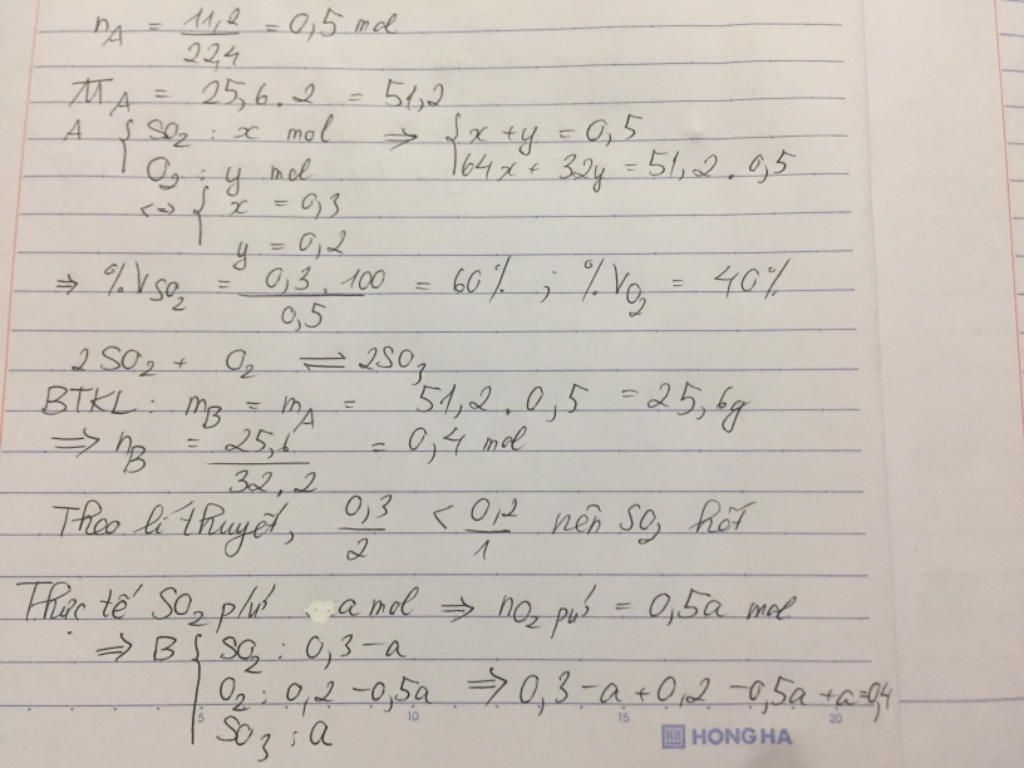 nA = 11,2/22,4 = 0,5 mol
M̅A = 25,6 . 2 = 51,2
A { SO2 : x mol ⇒ { x + y = 0,5
O2 : y mol 64x + 32y = 51,2 . 0,5
<=> { x = 0,3
y = 0,2
⇒ %VSO2 = 0,3 . 100/0,5 = 60% ; %VO2 = 40%
2SO2 + O2 ⇌ 2SO3
BTKL: mB = mA = 51,2 . 0,5 = 25,6g
⇒ nB = 25,6/32,2 = 0,4 mol
Theo lí thuyết, 0,3/2 < 0,2/1 nên SO2 hết
Thực tế SO2 p/ứ a mol ⇒ nO2 pứ = 0,5a mol
⇒ B { SO2 : 0,3 - a
O2 : 0,2 - 0,5a ⇒ 0,3 - a + 0,2 - 0,5a + a = 0,4
SO3 : a
5 10 15 20
HONG HA